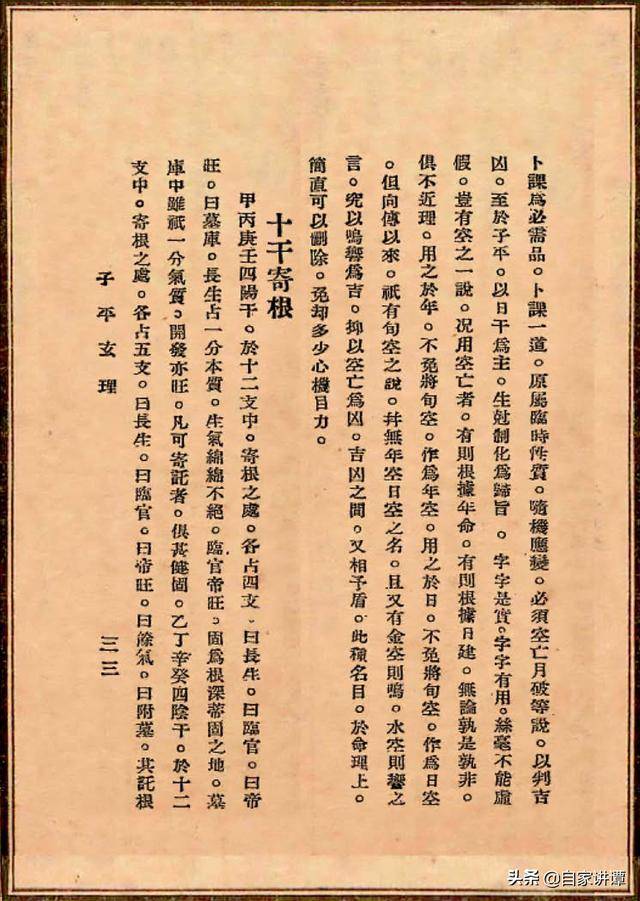 卜課爲必需品。卜課一道。原屬臨時性質。隨機應變。必須空亡月破等說。以判吉
凶。至於子平。以日干爲主。生尅制化爲歸旨。字字是實。字字有用。絲毫不能虛
假。豈有空之一說。况用空亡者。有則根據年命。有則根據日建。無論孰是孰非。
俱不近理。用之於年。不免將旬空。作爲年空。用之於日。不免將旬空。作爲日空
。但向傳以來。祇有旬空之說。幷無年空日空之名。且又有金空則鳴。水空則響之
言。究以鳴響爲吉。抑以空亡爲凶。吉凶之間。又相予盾。此種名目。於命理上。
簡直可以刪除。免却多少心機目力。
十干寄根
甲丙庚壬四陽干。於十二支中。寄根之處。各占四支。曰長生。曰臨官。曰帝
旺。曰墓庫。長生占一分本質。生氣綿綿不絕。臨官帝旺。固爲根深蒂固之地。墓
庫中雖祇一分氣質。開發亦旺。凡可寄託者。俱甚健固。乙丁辛癸四陰干。於十二
支中。寄根之處。各占五支。曰長生。曰臨官。曰帝旺。曰餘氣。曰附墓。其託根
子平玄理
三三
头条 @自家讲谭